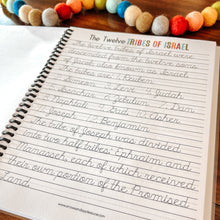 The Twelve TRIBES OF ISRAEL
The Twelve Tribes of Israel were
from the twelve sons
of known as Israel
tribes are
Simeon Levi Judah
Zebulun Dan
Naphtali Gad Asher
Joseph Benjamin
The tribe of Joseph was divided
into two half tribes: Ephraim and
Manasseh, each of which received
their own portion of the Promised
Land.